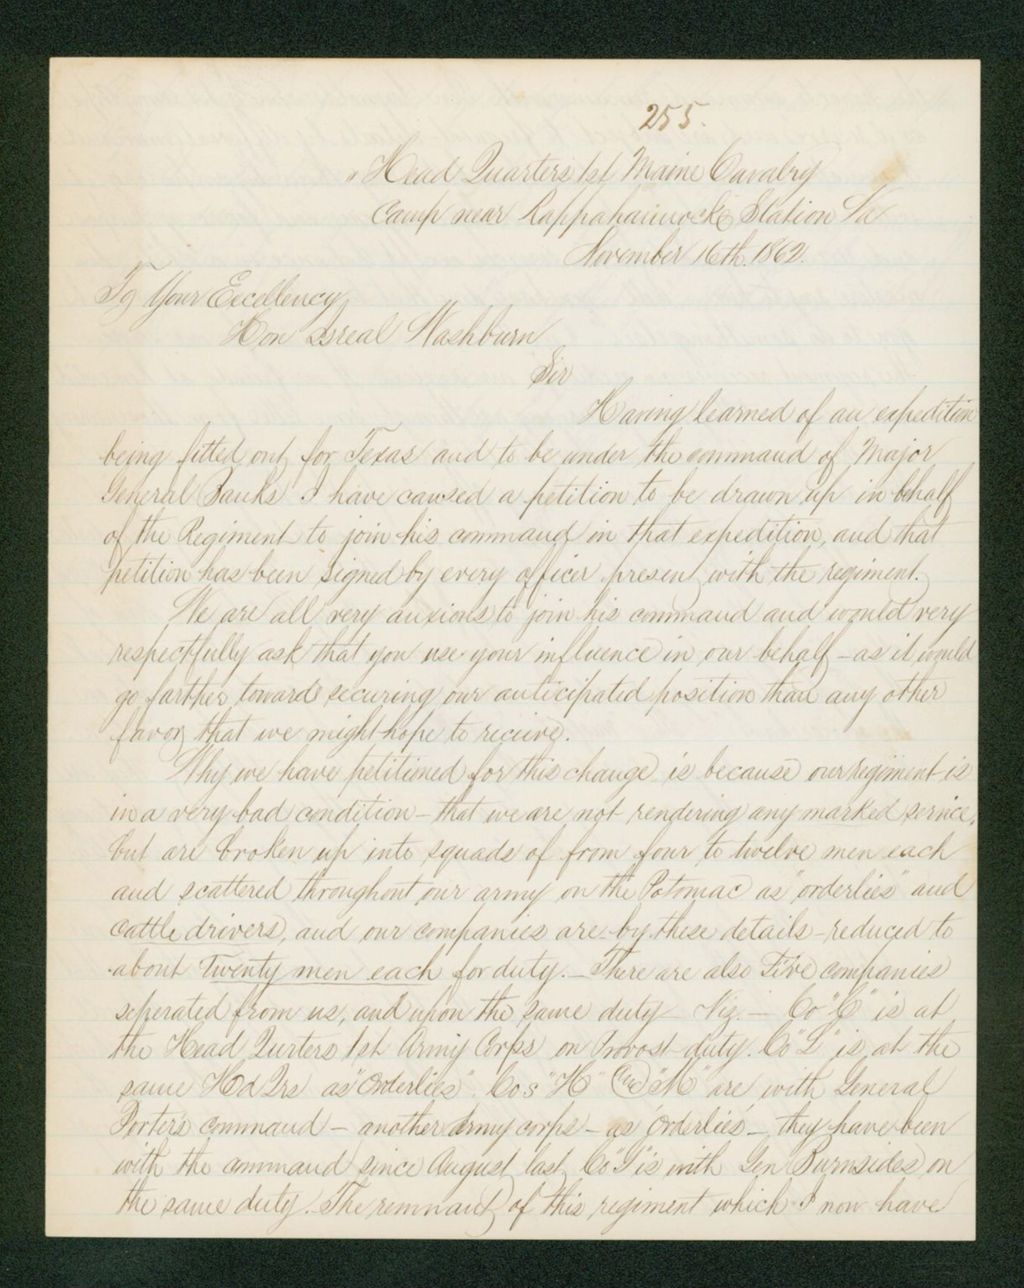 255.
" Head Quarters 1st Maine Cavalry
Camp near Rappahannock Station Va
November 16th. 1862.
To Your Excellency
Hon Isreal Washburn
Sir
Having learned of an expedition
being fitted out for Texas and to be under the command of Major
General Banks I have caused a petition to be drawn up in behalf
of the Regiment to join his command in that expedition, and that
petition has been signed by every officer present with the regiment.
We are all very anxious to join his command and would very
respectfully ask that you use your influence in our behalf - as it would
go farther towards securing our anticipated position than any other
favor that we might hope to recieve.
Why we have petitioned for this change is because our regiment is
in a very bad condition - that we are not rendering any marked service,
but are broken up into squads of from four to twelve men each
and scattered throughout our army on the Potomac as "orderlies" and
cattle drivers, and our companies are by these details - reduced to
about twenty men each for duty. - There are also Five companies
seperated from us, and upon the same duty Viz. - Co "C" is at
the Head Qurters 1st Army Corps on Provost duty. Co "L" is at the
same Hd Qrs as "Orderlies". Cos "H" and "M" are with General
Porters command - another army corps - as "Orderlies" - they have been
with the command since August last. Co is with Gen Burnsides on
the same duty. The remnant of this regiment which I now have